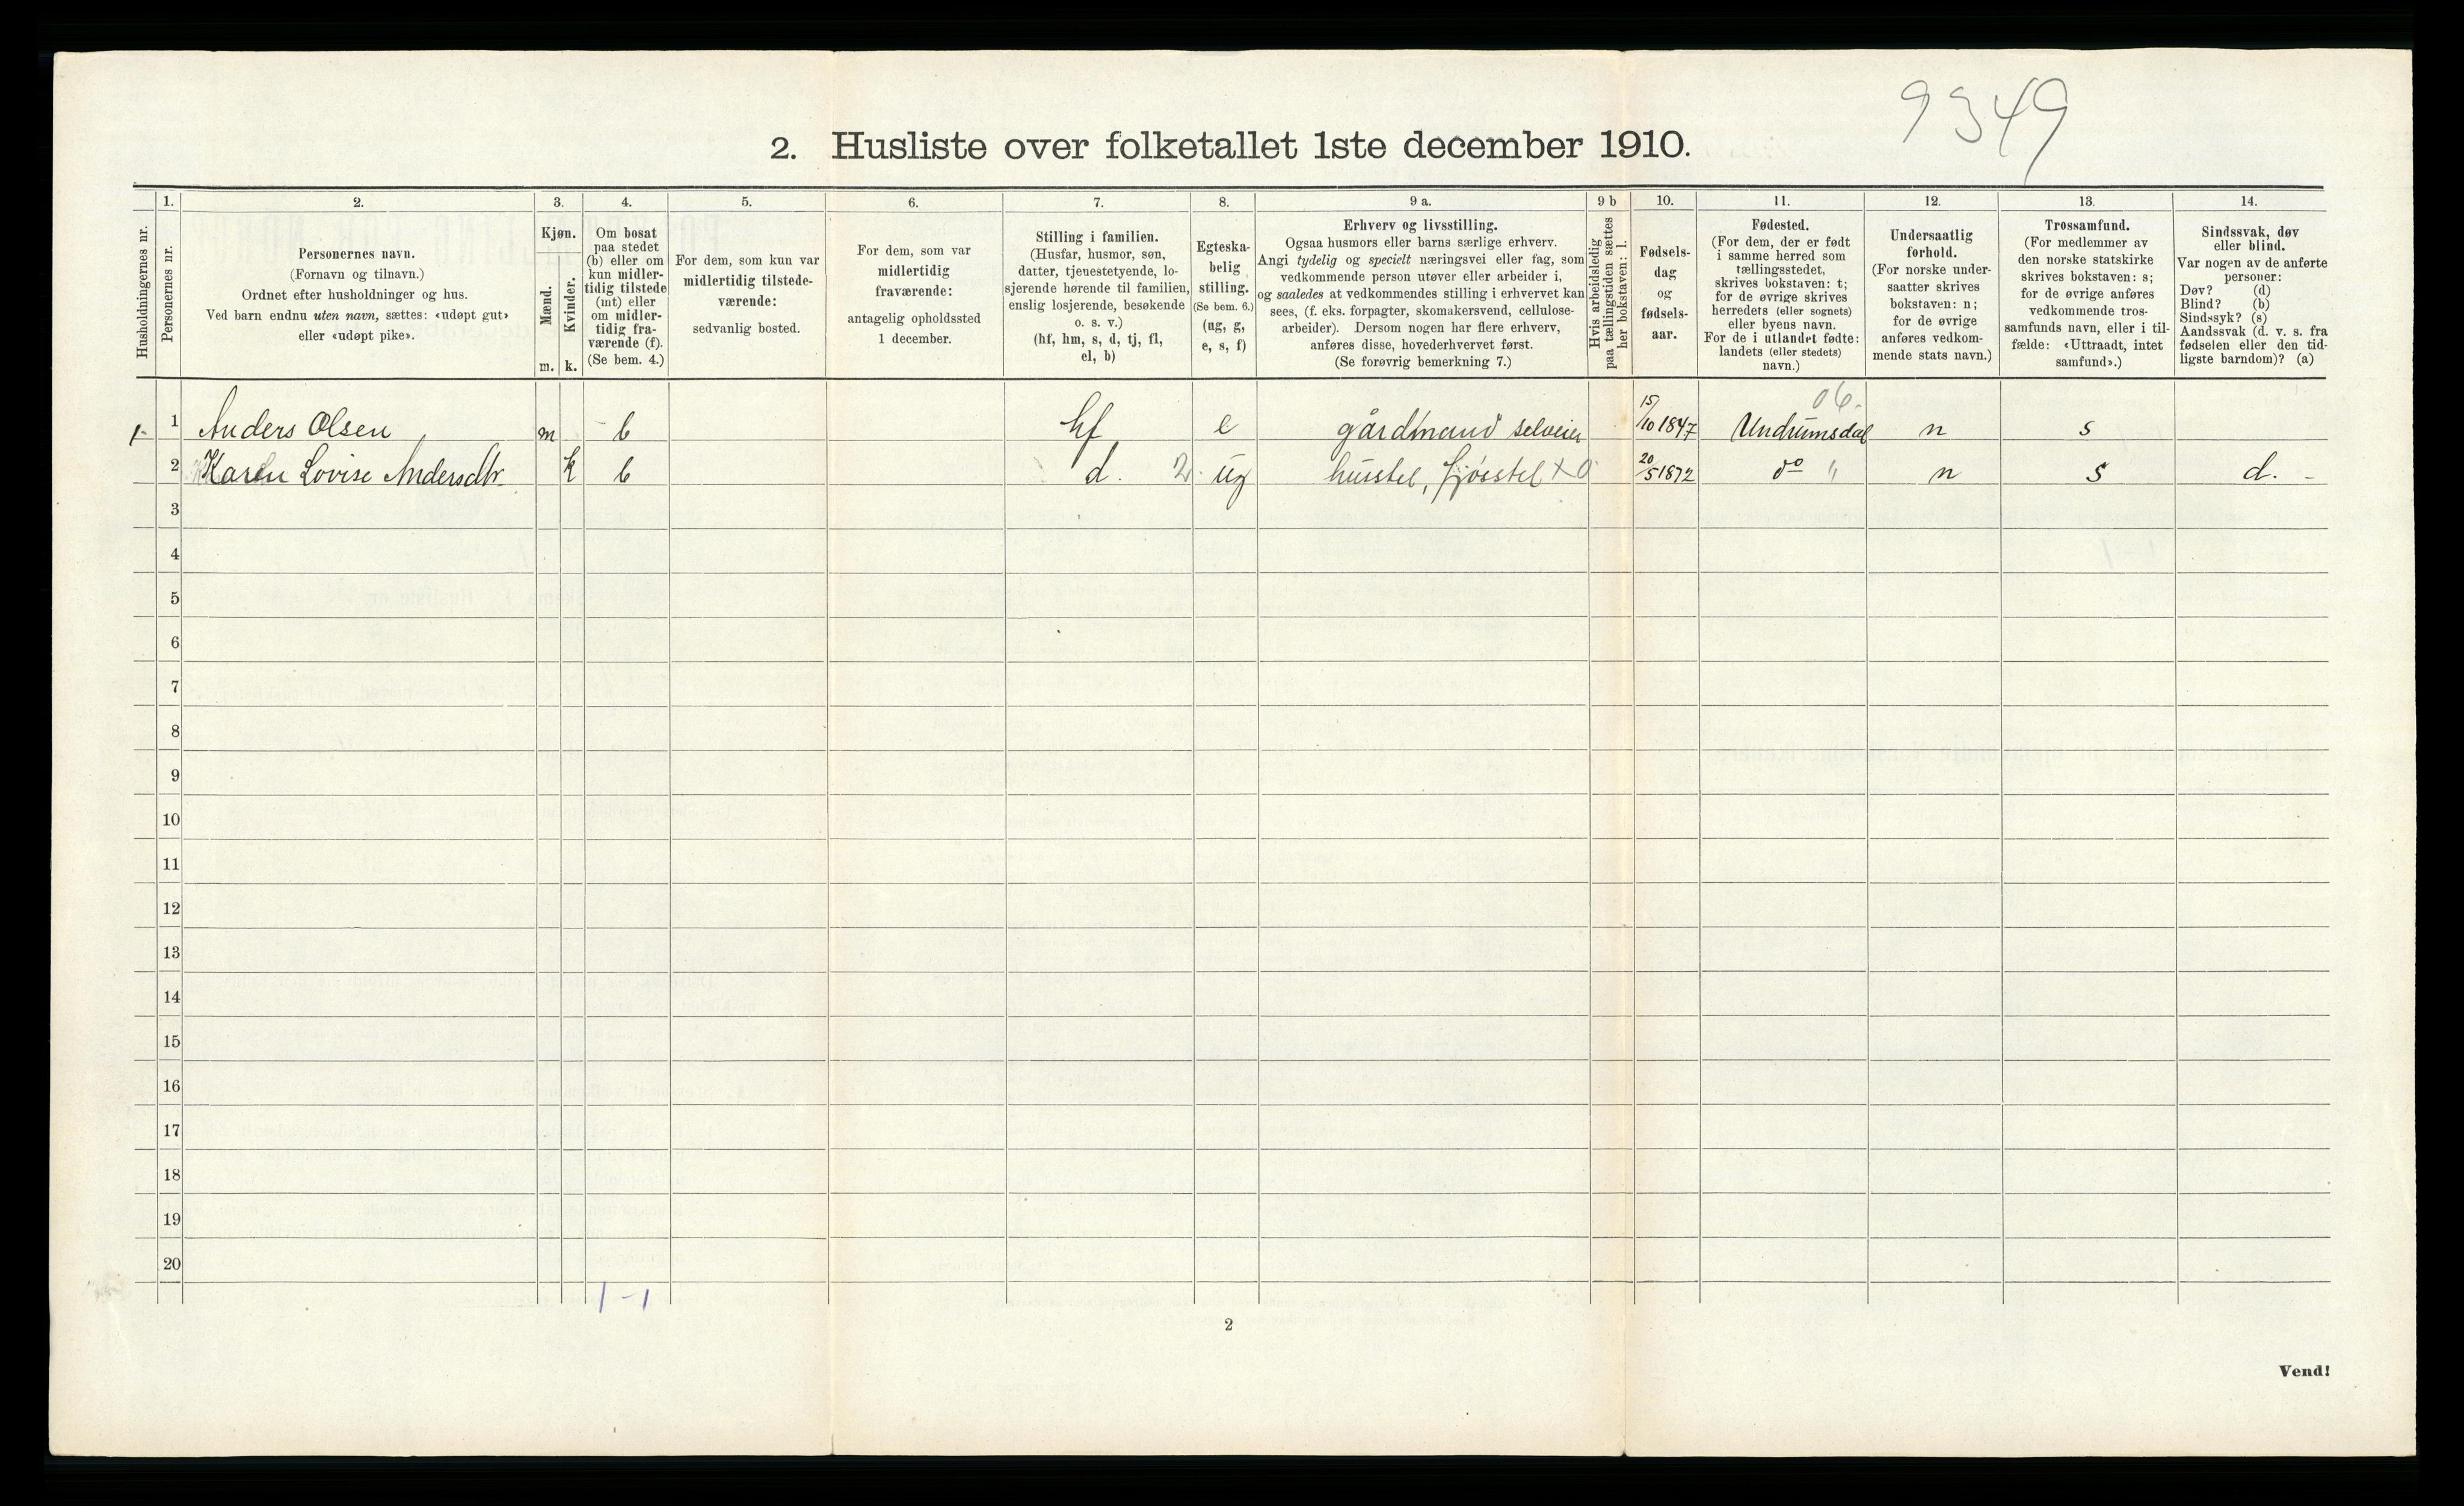 9349
2. Husliste over folketallet 1ste december 1910.
Husholdningernes nr.
1.
Personernes nr.
2.
Personernes navn.
(Fornavn og tilnavn.)
Ordnet efter husholdninger og hus.
Ved barn endnu uten navn, sættes: «udøpt gut»
eller «udøpt pike».
3.
Kjøn.
Mænd.
Kvinder.
m. k.
4.
Om bosat
paa stedet
(b) eller om
kun midler-
tidig tilstede
(mt) eller
om midler-
tidig fra-
værende (f).
(Se bem. 4.)
5.
For dem, som kun var
midlertidig tilstede-
værende:
sedvanlig bosted.
6.
For dem, som var
midlertidig
fraværende:
antagelig opholdssted
1 december.
7.
Stilling i familien.
(Husfar, husmor, søn,
datter, tjenestetyende, lo-
sjerende hørende til familien,
enslig losjerende, besøkende
o. s. v.)
(hf, hm, s, d, tj, fl,
el, b)
8.
Egteska-
belig
stilling.
(Se bem. 6.)
(ug, g,
e, s, f)
9 a.
Erhverv og livsstilling.
Ogsaa husmors eller barns særlige erhverv.
Angi tydelig og specielt næringsvei eller fag, som
vedkommende person utøver eller arbeider i,
og saaledes at vedkommendes stilling i erhvervet kan
sees, (f. eks. forpagter, skomakersvend, cellulose-
arbeider). Dersom nogen har flere erhverv,
anføres disse, hovederhvervet først.
(Se forøvrig bemerkning 7.)
9 b
Hvis arbeidsledig
paa tællingstiden sættes
her bokstaven: l.
10.
Fødsels-
dag
og
fødsels-
aar.
11.
Fødested.
(For dem, der er født
i samme herred som
tællingsstedet,
skrives bokstaven: t;
for de øvrige skrives
herredets (eller sognets)
eller byens navn.
For de i utlandet fødte:
landets (eller stedets)
navn.)
12.
Undersaatlig
forhold.
(For norske under-
saatter skrives
bokstaven: n;
for de øvrige
anføres vedkom-
mende stats navn.)
13.
Trossamfund.
(For medlemmer av
den norske statskirke
skrives bokstaven: s;
for de øvrige anføres
vedkommende tros-
samfunds navn, eller i til-
fælde: «Uttraadt, intet
samfund».)
14.
Sindssvak, døv
eller blind.
Var nogen av de anførte
personer:
Døv? (d)
Blind? (b)
Sindssyk? (s)
Aandssvak (d. v. s. fra
fødselen eller den tid-
ligste barndom)? (a)
06.
1. 1 Anders Olsen m b hf e gårdmand selveier 15/10 1847 Undrumsdal n s
2 Karen Lovise Andersdtr. k b d. 2. ug husstel, fjøsstel + 0 20/5 1872 do " n s d. -
3
4
5
6
7
8
9
10
11
12
13
14
15
16
17
18
19
20
1 - 1
2
Vend!